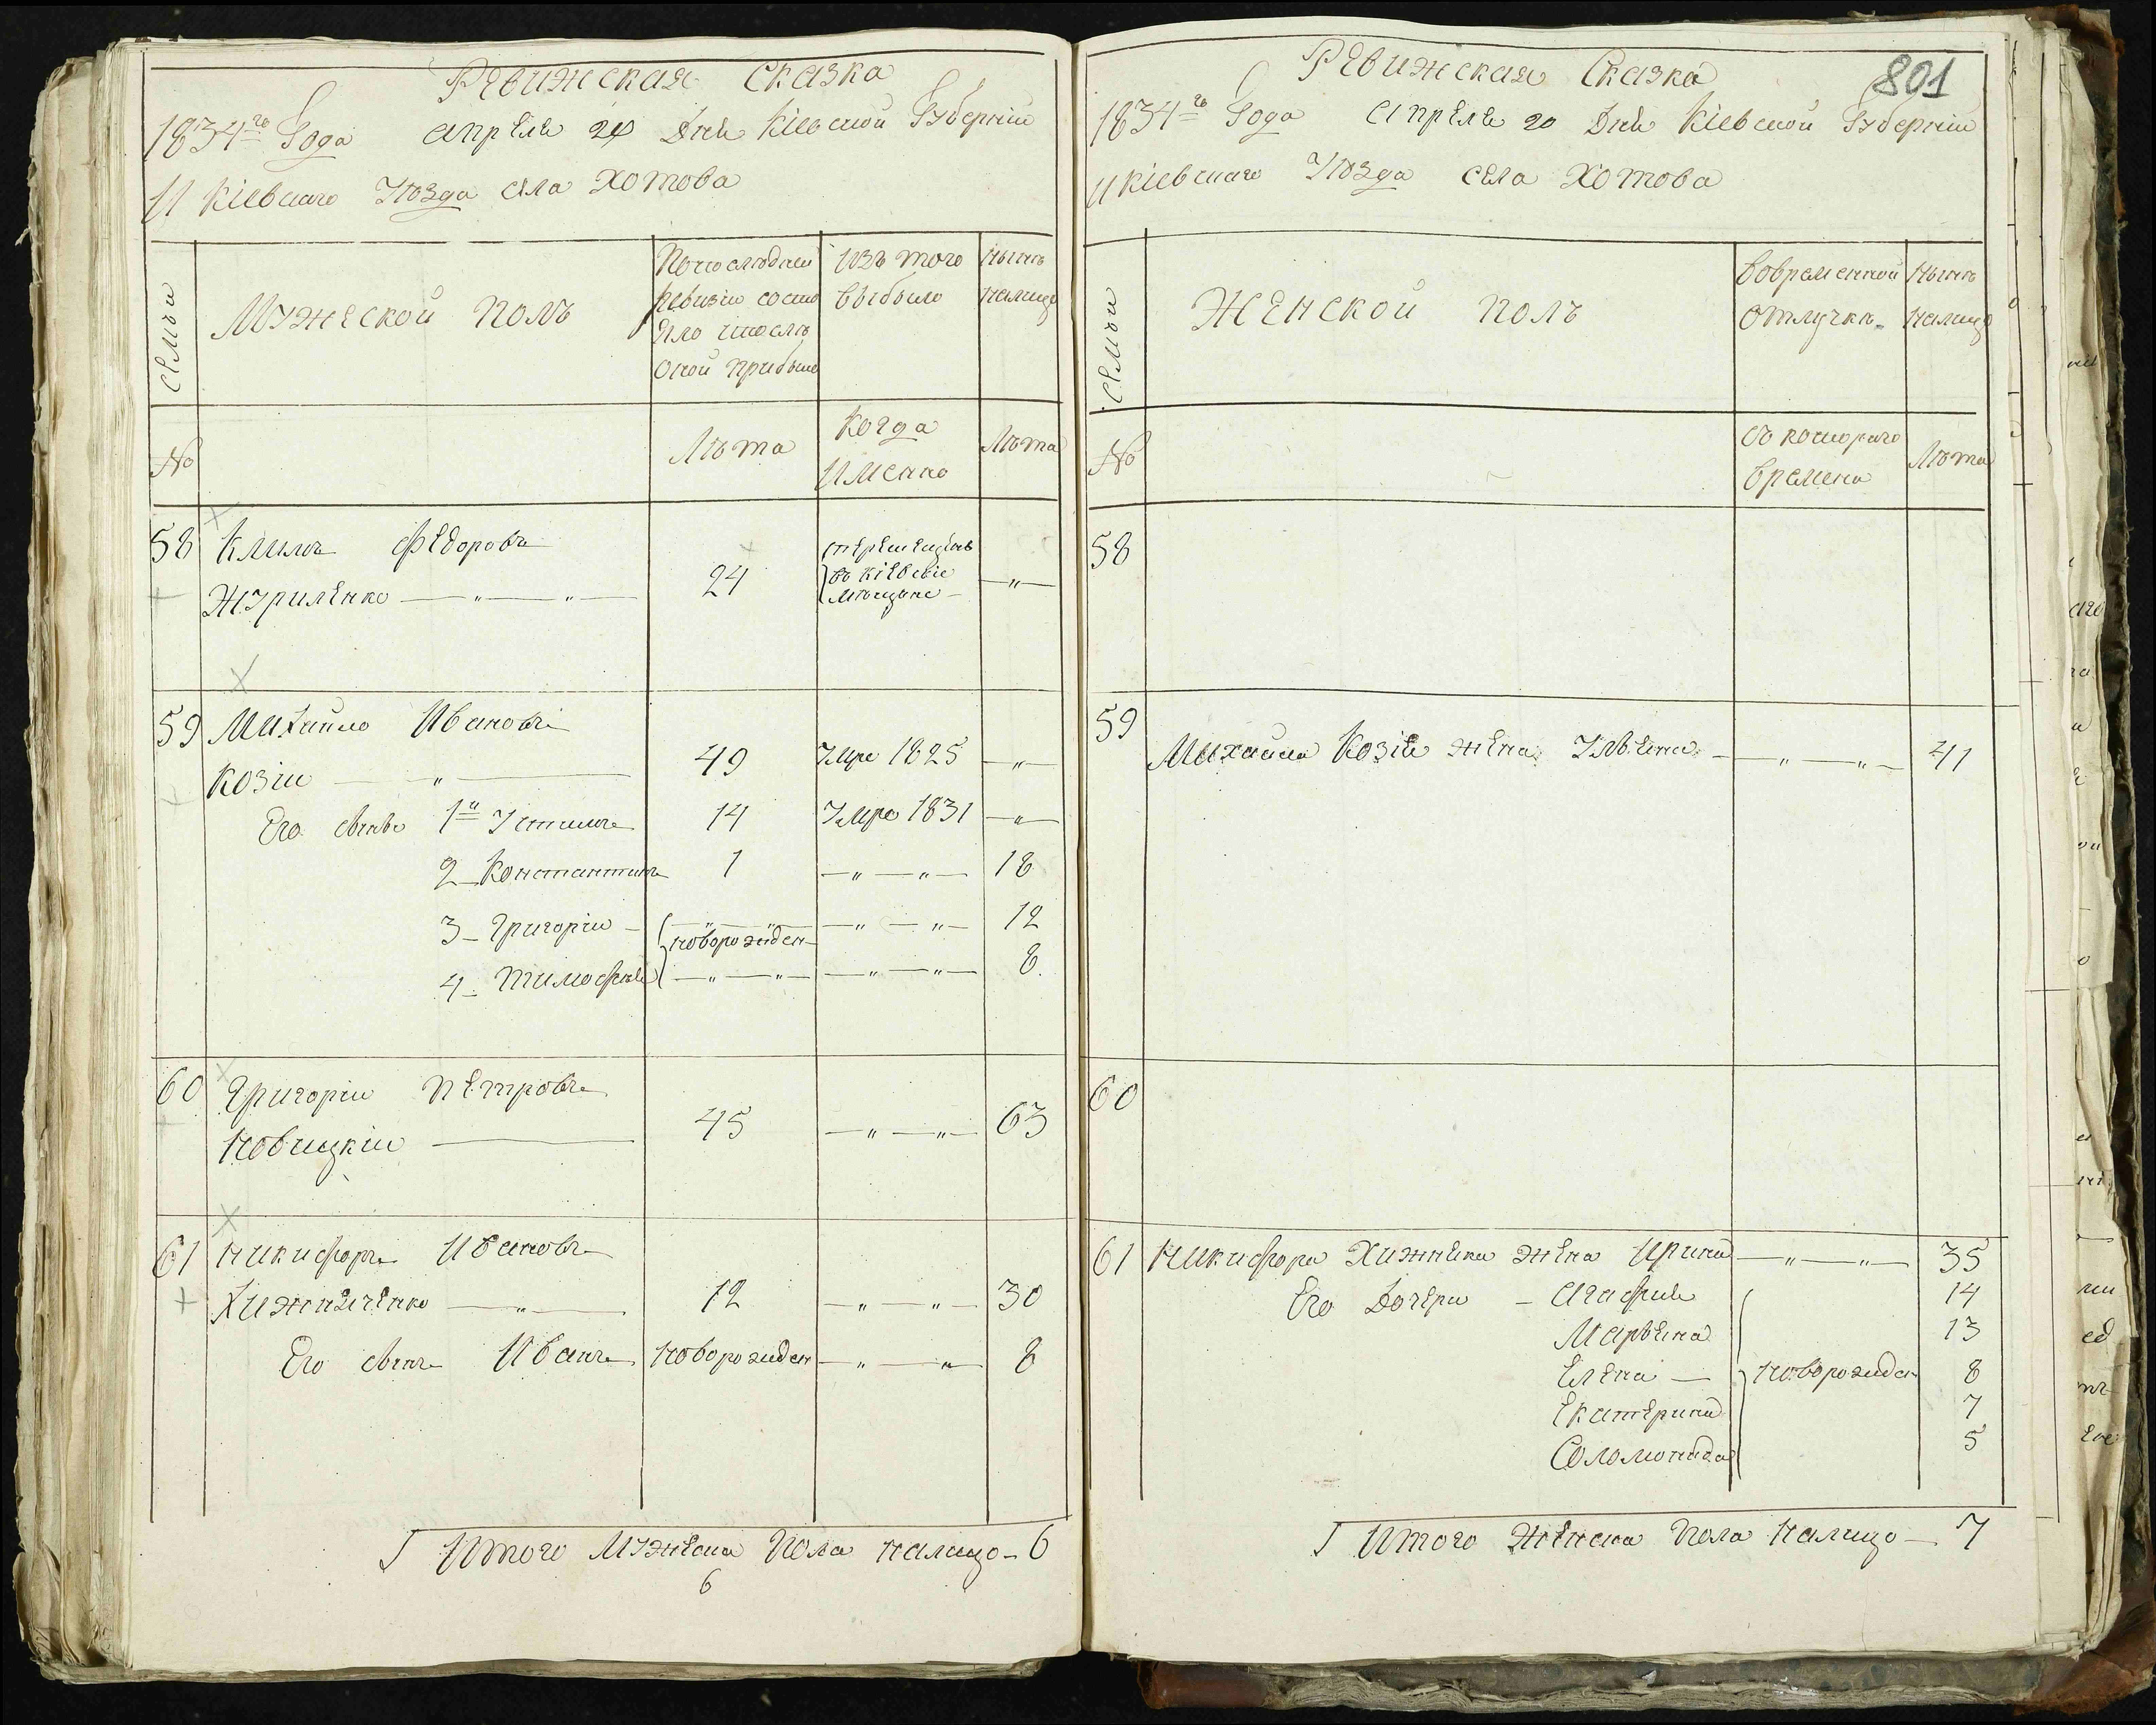 Ревижская Сказка
1834го Года апреля 20 Дня Кіевской Губерніи
И Кіевскаго Уѣзда села Хотова
Семьи
Мужеской полъ
По последней
ревизіи состо
яло и после
оной прибыло
изъ того
выбыло
ныне
налицо
№
Лѣта
Когда
Именно
Лѣта
58 Климъ Федоровъ
Журиленко — „ — „ — 24 перемещенъ въ кіевскіе мещане — „ —
59 Михайло Ивановъ
Козій — „ — 49 Умре 1825 — „ —
Его сынъ 1й Устимъ 14 Умре 1831 — „ —
2 Константинъ 1 — „ — „ — 18
3 Григорій — новорожден — „ — „ — 12
4 Тимофей — „ — „ — „ — „ — 8
60 Григорій Петровъ
Новицкій — 45 — „ — „ — 63
61 Никифоръ Ивановъ
Хижняченко — „ — 12 — „ — „ — 30
Его сынъ Иванъ новорожден — „ — „ 8
Итого Мужеска Пола налицо — 6
6
Ревижская Сказка
801
1834го Года Апреля 20 Дня Кіевской Губерніи
и Кіевскаго Уѣзда села Хотова
Семьи
Женской полъ
Вовременной
отлучкѣ
ныне
налицо
№
съ котораго
времена
Лѣта
58
59
Михайла Козія жена Ульяна — „ — „ — 41
60
61 Никифора Хижняка жена Ирина — „ — „ — 35
Его Дочери — Агафія 14
Марьяна 13
Елена — новорожден 8
Екатерина 7
Соломонида 5
Итого Женска Пола налицо — 7